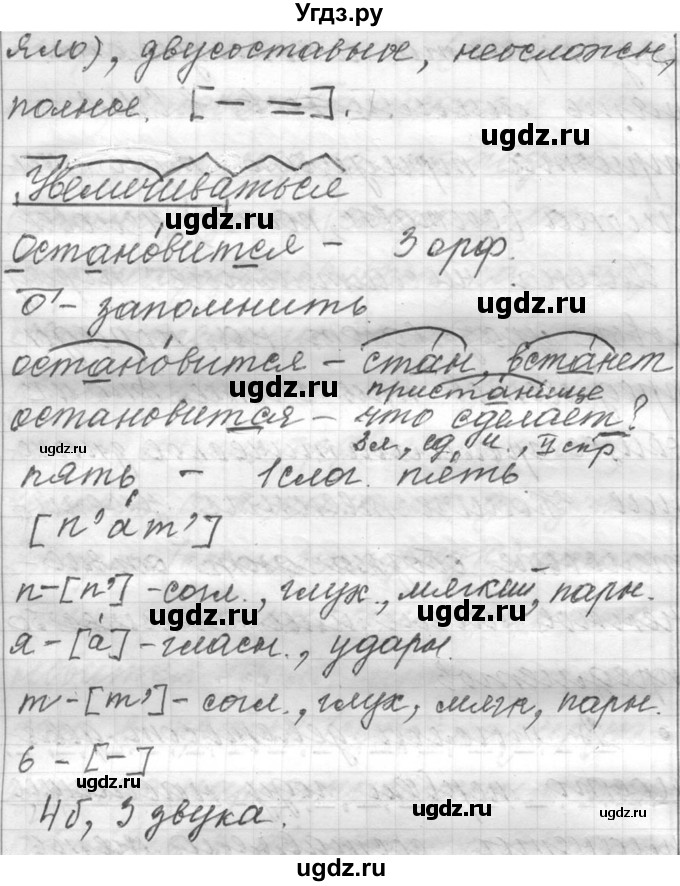 Угдз.ру
яло), двусоставное, неосложн,
полное. [— =].
ugdz.ru
Увеличиваться
ugdz.ru
Остано́вится — 3 орф.
о — запомнить
остано́вится — стан, встанет
ugdz.ru
пристанище
остановится — что сделает?
3 л, ед, ч, II спр.
ugdz.ru
ugdz.ru
пять — 1 слог. пять
[п'а́т']
п-[п'] - согл., глух., мягкий, парн.
ugdz.ru
ugdz.ru
я-[а́] - гласн., ударн.
т-[т'] - согл., глух, мягк, парн.
ь-[-]
ugdz.ru
4б, 3 звука.
ugdz.ru
ugdz.ru
ugdz.ru